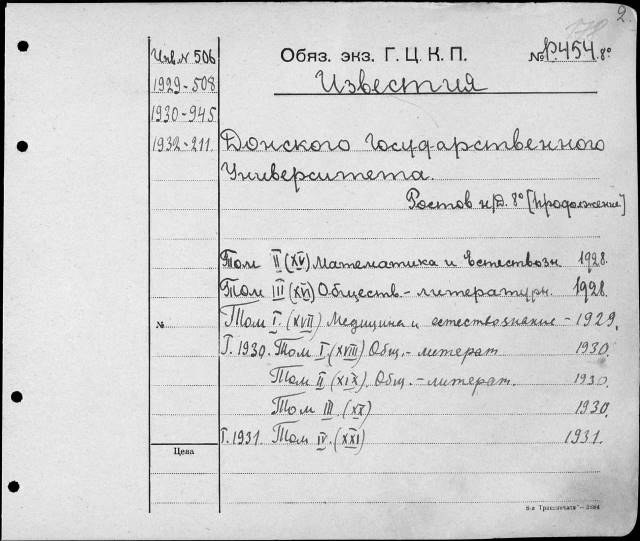 2.
178
Инв.N 506
Обяз. экз. Г. Ц. К. П.
№ P.454.8°
1929-508
Известия
1930-945
1932-211.
Донского Государственного
Университета.
Ростов н/Д. 8° [продолжение]
Том II (XV) Математика и Естествозн 1928.
Том III (XVI) Обществ.-литературн. 1928.
№
Том I. (XVII) Медицина и естествознание - 1929.
Г. 1930. Том I (XVIII) Общ.-литерат 1930.
Том II (XIX). Общ.-литерат. 1930.
Том III. (XX) 1930.
Г. 1931. Том IV. (XXI) 1931.
Цена
6-я Транспечати"—3984